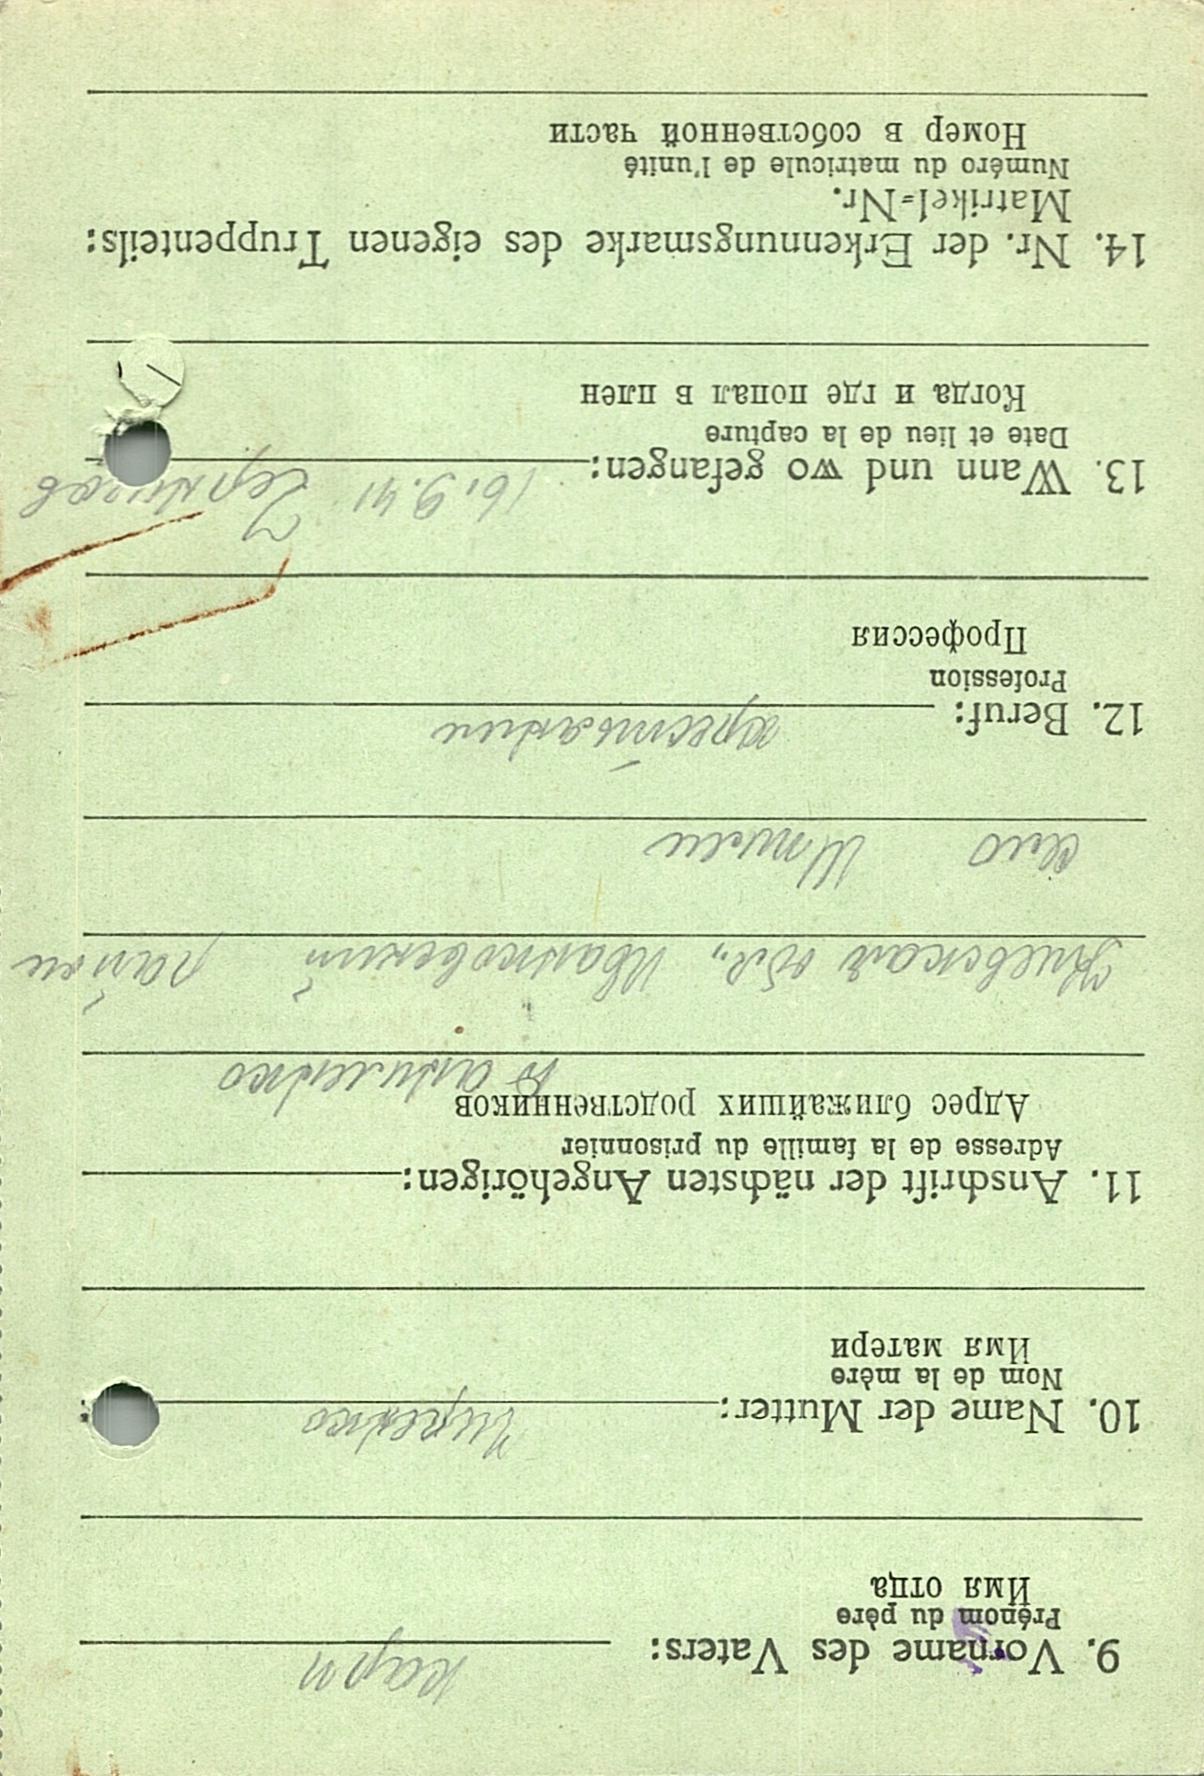 9. Vorname des Vaters: Карп
Prénom du père
Имя отца
10. Name der Mutter: Чиренко
Nom de la mère
Имя матери
11. Anschrift der nächsten Angehörigen:
Adresse de la famille du prisonnier
Адрес ближайших родственников
Даниленко
Киевская обл., Иванковский район
село
12. Beruf: крестьянин
Profession
Профессия
13. Wann und wo gefangen: 16.9.41 Чернигов
Date et lieu de la capture
Когда и где попал в плен
14. Nr. der Erkennungsmarke des eigenen Truppenteils:
Matrikel=Nr.
Numéro du matricule de l'unité
Номер в собственной части